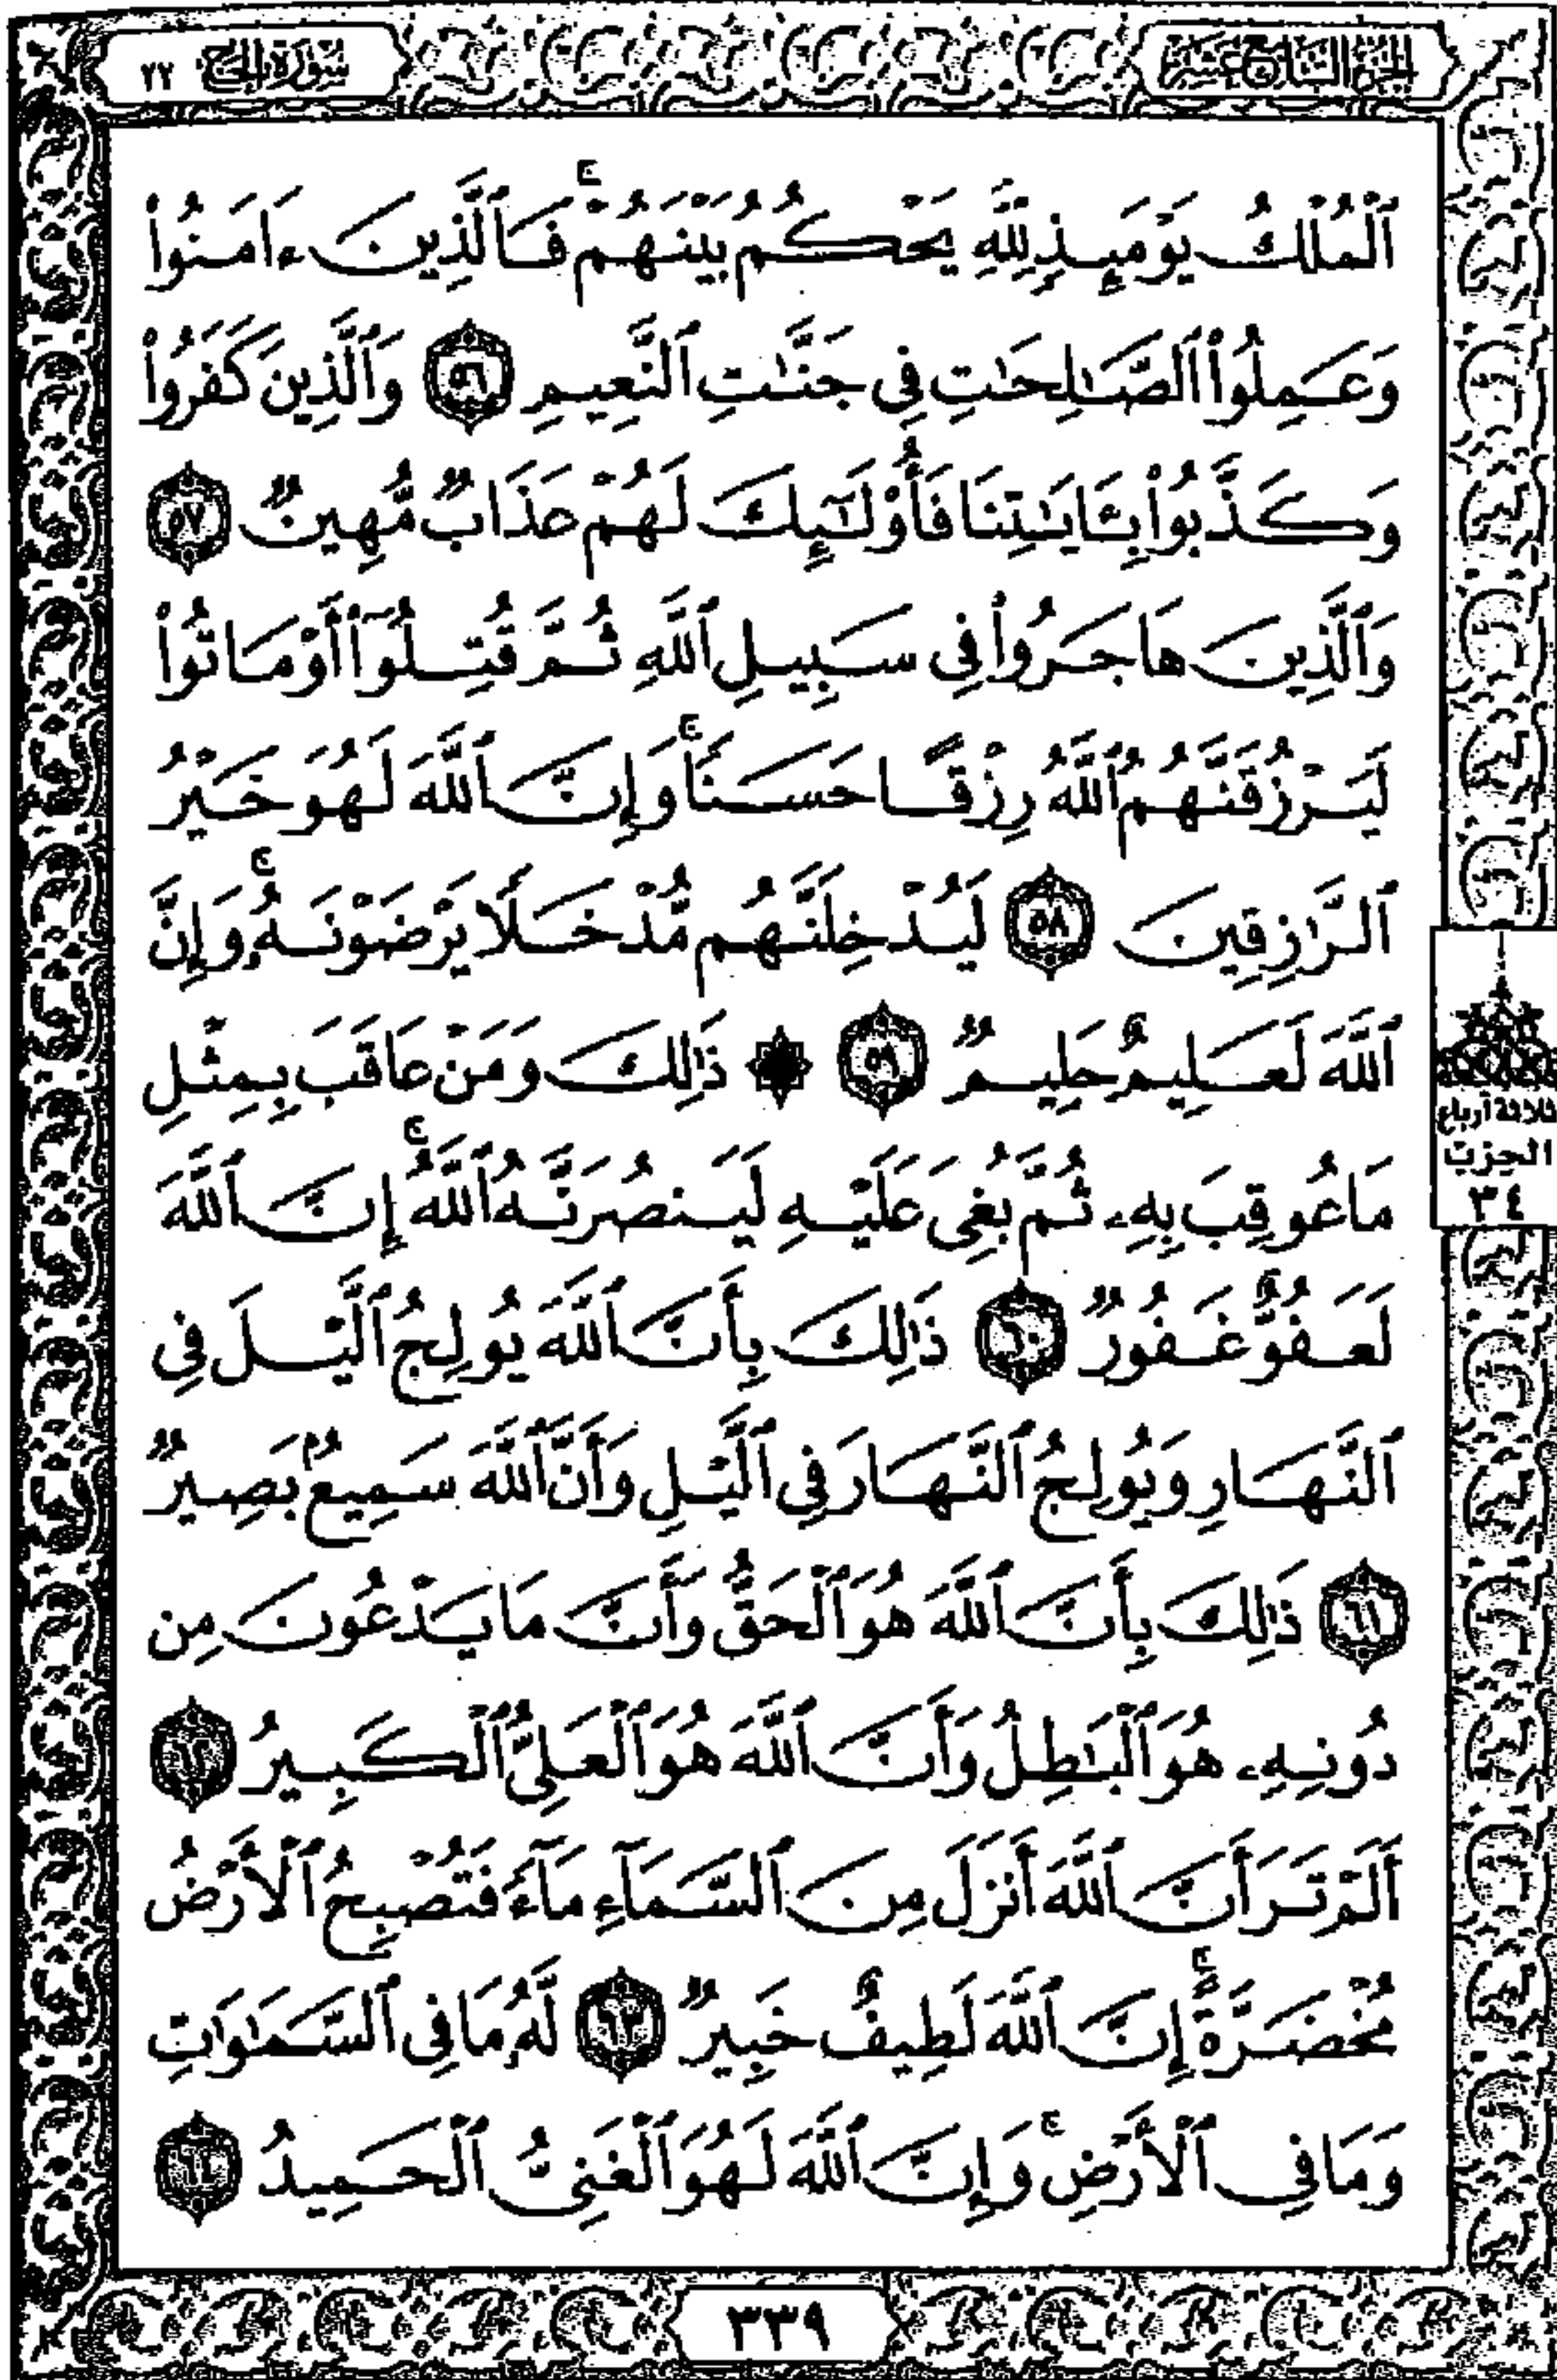 الجزء السابع عشر
سورة الحج ٢٢
ٱلْمُلْكُ يَوْمَئِذٍ لِّلَّهِ يَحْكُمُ بَيْنَهُمْ ۚ فَٱلَّذِينَ ءَامَنُوا۟
وَعَمِلُوا۟ ٱلصَّـٰلِحَـٰتِ فِى جَنَّـٰتِ ٱلنَّعِيمِ ٥٦ وَٱلَّذِينَ كَفَرُوا۟
وَكَذَّبُوا۟ بِـَٔايَـٰتِنَا فَأُو۟لَـٰٓئِكَ لَهُمْ عَذَابٌ مُّهِينٌ ٥٧
وَٱلَّذِينَ هَاجَرُوا۟ فِى سَبِيلِ ٱللَّهِ ثُمَّ قُتِلُوٓا۟ أَوْ مَاتُوا۟
لَيَرْزُقَنَّهُمُ ٱللَّهُ رِزْقًا حَسَنًا ۚ وَإِنَّ ٱللَّهَ لَهُوَ خَيْرُ
ٱلرَّٰزِقِينَ ٥٨ لَيُدْخِلَنَّهُم مُّدْخَلًا يَرْضَوْنَهُۥ ۗ وَإِنَّ
ٱللَّهَ لَعَلِيمٌ حَلِيمٌ ٥٩ ۞ ذَٰلِكَ وَمَنْ عَاقَبَ بِمِثْلِ
مَا عُوقِبَ بِهِۦ ثُمَّ بُغِىَ عَلَيْهِ لَيَنصُرَنَّهُ ٱللَّهُ ۚ إِنَّ ٱللَّهَ
لَعَفُوٌّ غَفُورٌ ٦٠ ذَٰلِكَ بِأَنَّ ٱللَّهَ يُولِجُ ٱلَّيْلَ فِى
ٱلنَّهَارِ وَيُولِجُ ٱلنَّهَارَ فِى ٱلَّيْلِ وَأَنَّ ٱللَّهَ سَمِيعٌۢ بَصِيرٌ
٦١ ذَٰلِكَ بِأَنَّ ٱللَّهَ هُوَ ٱلْحَقُّ وَأَنَّ مَا يَدْعُونَ مِن
دُونِهِۦ هُوَ ٱلْبَـٰطِلُ وَأَنَّ ٱللَّهَ هُوَ ٱلْعَلِىُّ ٱلْكَبِيرُ ٦٢
أَلَمْ تَرَ أَنَّ ٱللَّهَ أَنزَلَ مِنَ ٱلسَّمَآءِ مَآءً فَتُصْبِحُ ٱلْأَرْضُ
مُخْضَرَّةً ۗ إِنَّ ٱللَّهَ لَطِيفٌ خَبِيرٌ ٦٣ لَّهُۥ مَا فِى ٱلسَّمَـٰوَٰتِ
وَمَا فِى ٱلْأَرْضِ ۗ وَإِنَّ ٱللَّهَ لَهُوَ ٱلْغَنِىُّ ٱلْحَمِيدُ ٦٤
ثلاثة أرباع
الحزب
٣٤
٣٣٩